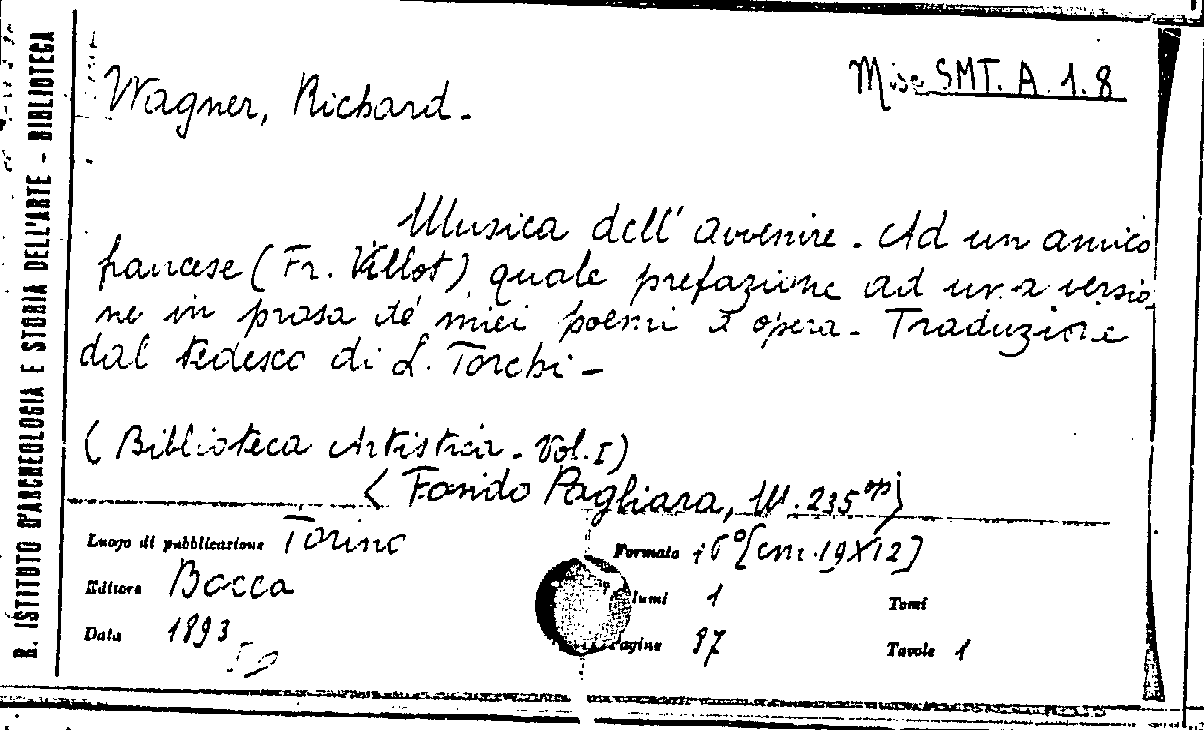 R. ISTITUTO D'ARCHEOLOGIA E STORIA DELL'ARTE - BIBLIOTECA
Wagner, Richard.
Misc SMT. A. 1. 8
Musica dell'avvenire. Ad un amico
francese (Fr. Villot) quale prefazione ad una versio
ne in prosa de' miei poemi d'opera. Traduzione
dal tedesco di L. Torchi -
(Biblioteca Artistica. Vol. I)
(Fondo Pagliara, W. 235)
Luogo di pubblicazione Torino
Formato 16° [cm. 19X12]
Editore Bocca
Volumi 1
Tomi
Data 1893
Pagine 97
Tavole 1